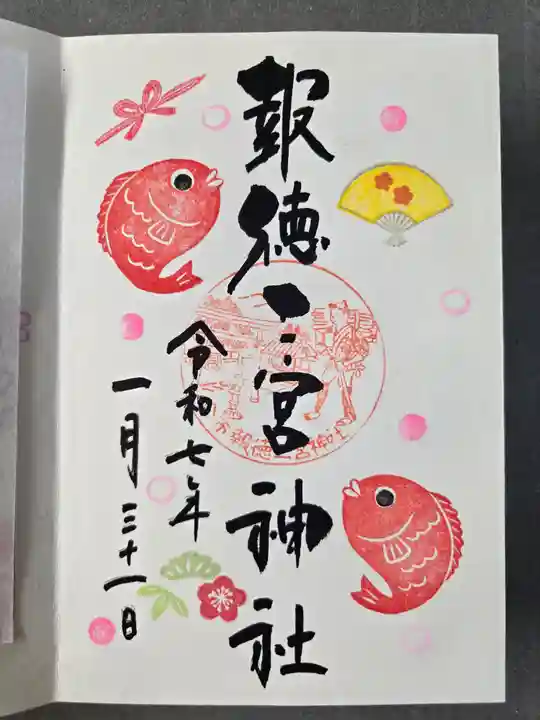 報徳二宮神社
令和七年
一月三十一日
報徳二宮神社